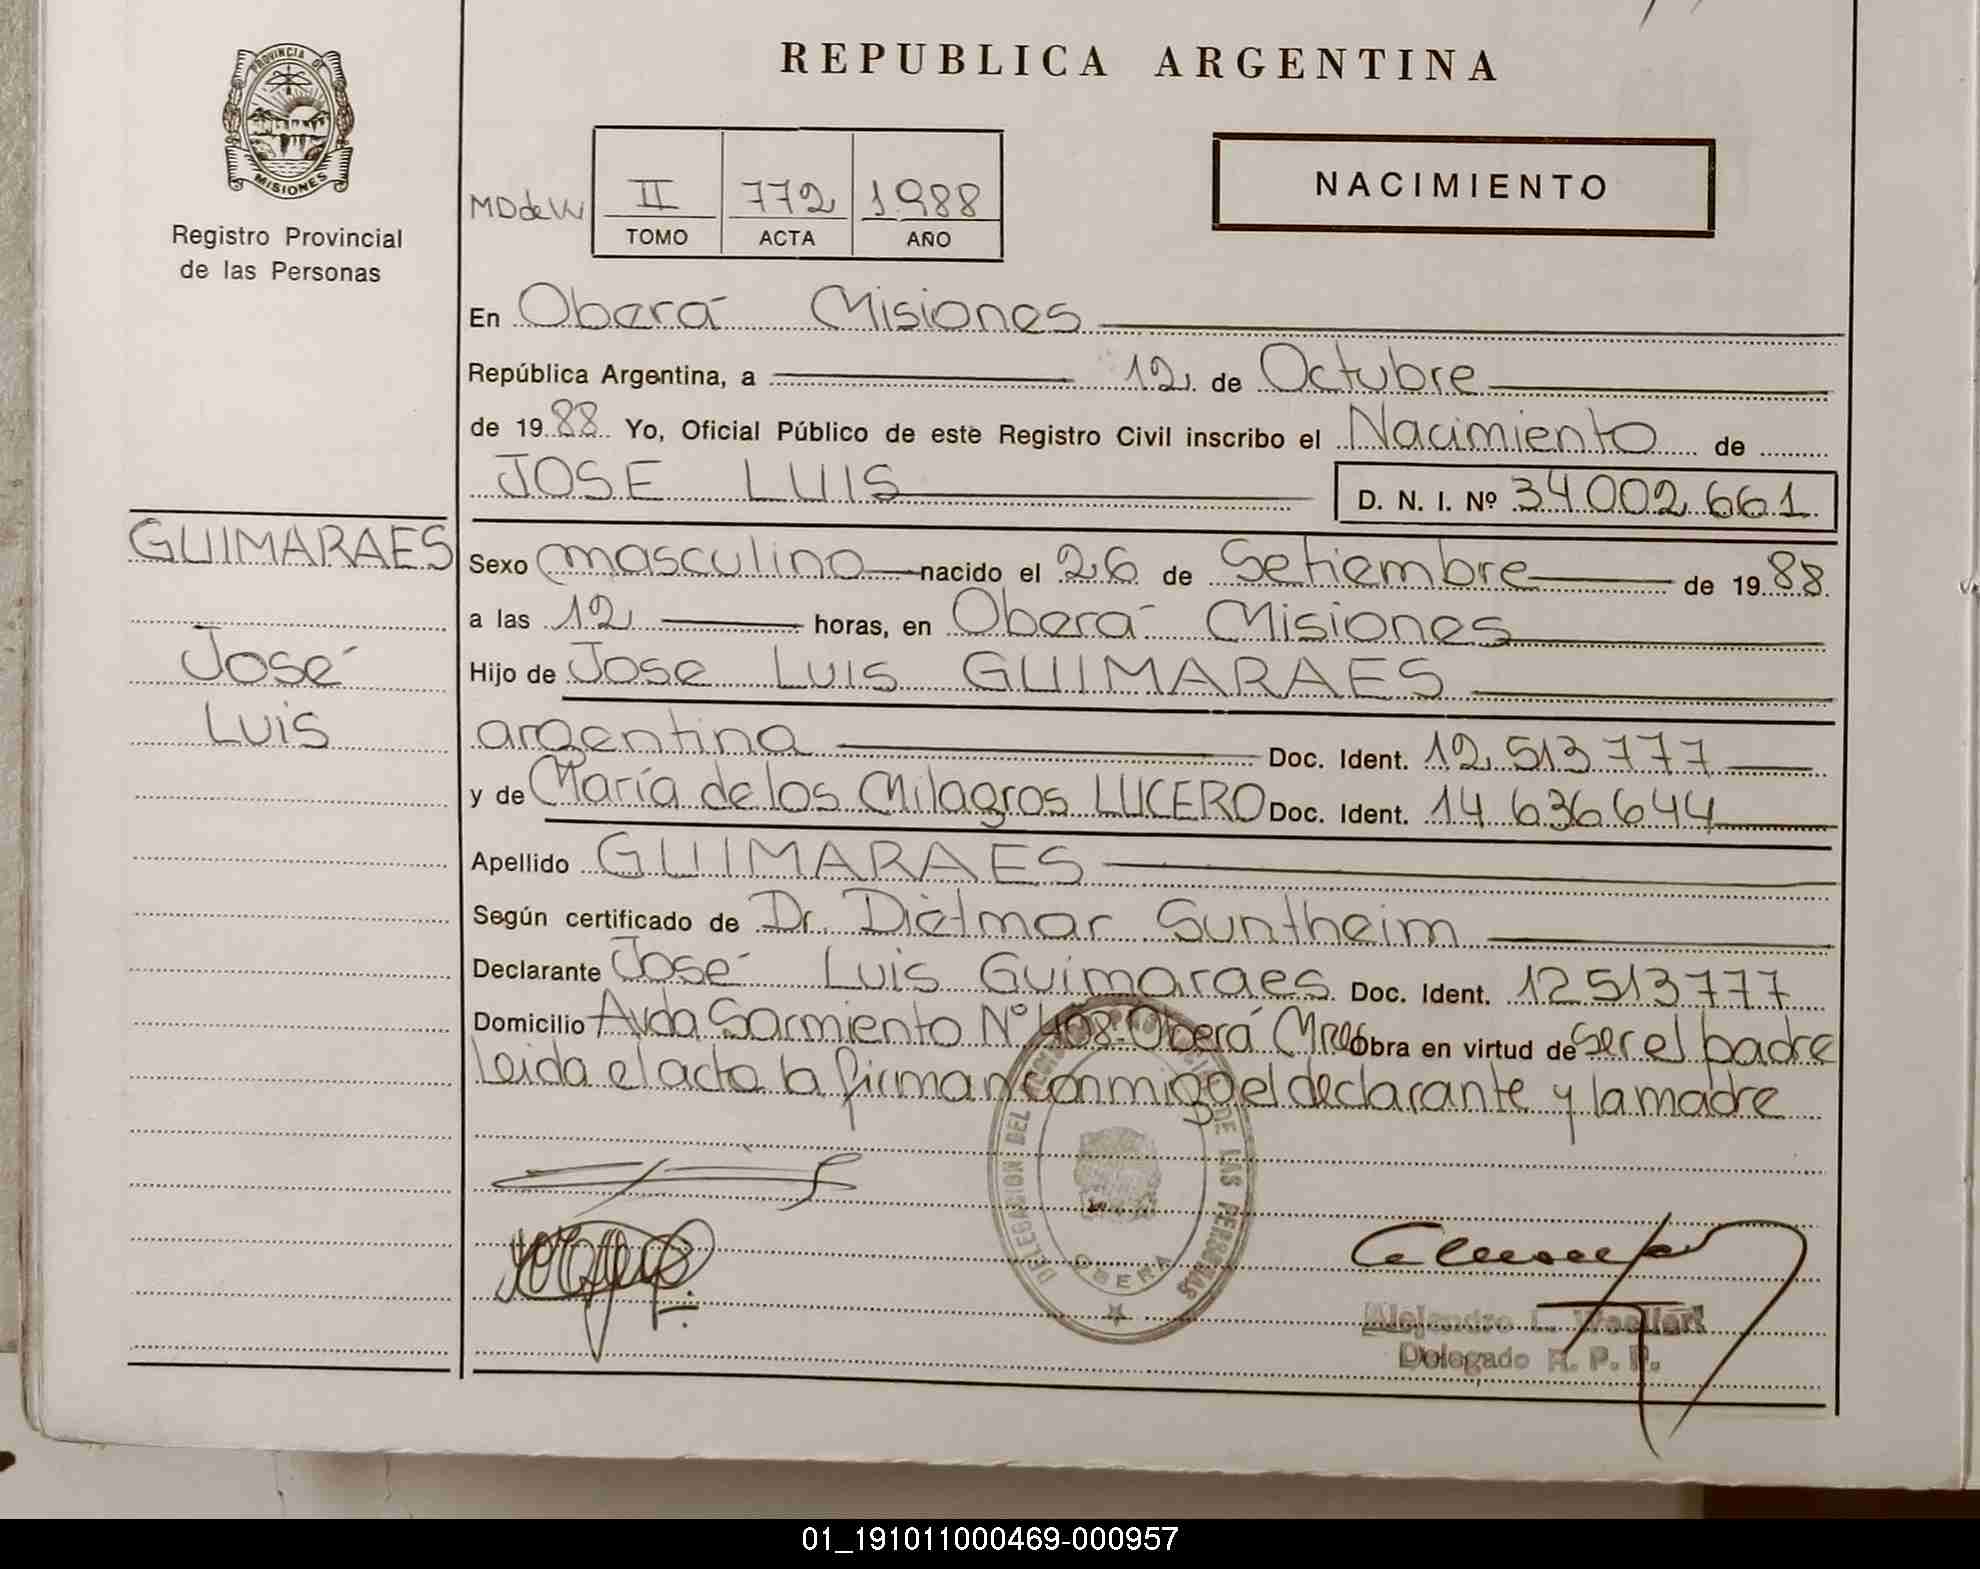 REPUBLICA ARGENTINA
PROVINCIA D
MISIONES
Registro Provincial
de las Personas
NACIMIENTO
II 772 1988
TOMO ACTA AÑO
En Oberá Misiones
República Argentina, a 12 de Octubre
de 1988 Yo, Oficial Público de este Registro Civil inscribo el Nacimiento de
JOSE LUIS D. N. I. Nº 34002661
GUIMARAES
José
Luis
Sexo masculino nacido el 26 de Setiembre de 1988
a las 12 horas, en Oberá Misiones
Hijo de Jose Luis GUIMARAES
argentina Doc. Ident. 12.513777
y de María de los Milagros LUCERO Doc. Ident. 14636644
Apellido GUIMARAES
Según certificado de Dr. Dietmar Suntheim
Declarante José Luis Guimaraes Doc. Ident. 12513777
Domicilio Avda Sarmiento Nº 408. Oberá Mnes Obra en virtud de ser el padre
Leida el acta la firman conmigo el declarante y la madre
DELEGACION DEL DE LAS PERSONAS
OBERA
Alejandro L.
Delegado R. P. P.
01_191011000469-000957